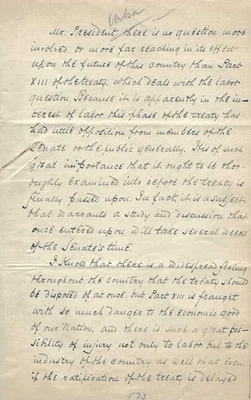 Labor
Mr. President, there is no question more
involved or more far reaching in its effect
upon the future of this country than Part
XIII of the treaty, which deals with the labor
question. Because it is apparently in the in-
terest of labor this phase of the treaty has
had little opposition from members of the
Senate or the public generally. It is of such
great importance that it ought to be tho-
roughly examined into before the treaty is
finally passed upon. In fact, it is a subject
that warrants a study and discussion that
once entered upon will take several weeks
of the Senate's time.
I know that there is a widespread feeling
throughout the country that the treaty should
be disposed of at once, but Part XIII is fraught
with so much danger to the economic good
of our Nation, and there is such a great pos-
sibility of injury not only to labor but to the
industry of the country as well that even
if the ratification of the treaty is delayed